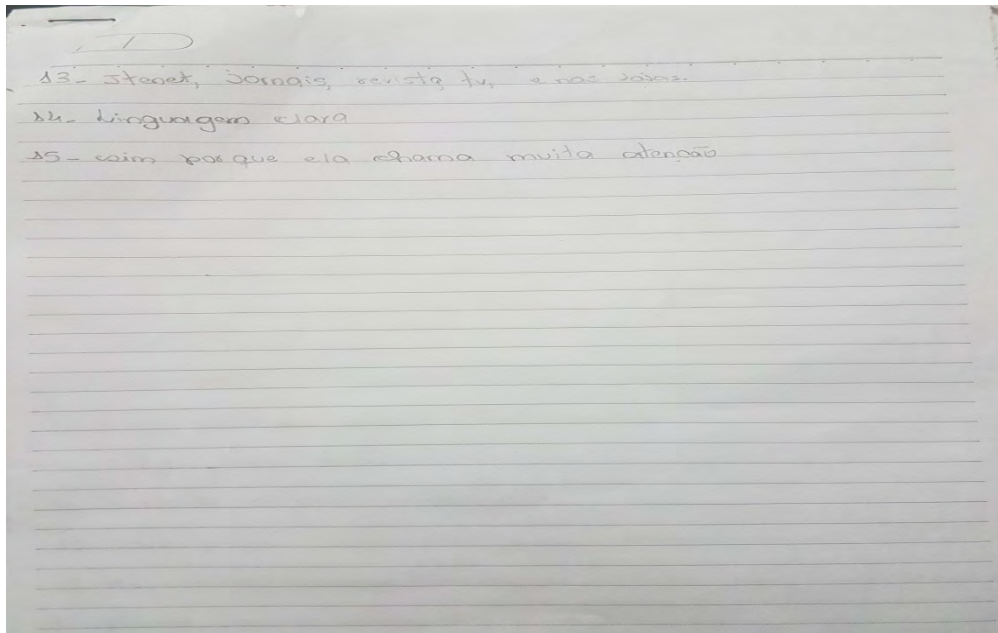 13- Itenet, Jornais, revista, tv, e nas
14- Linguagem clara
15- ceim por que ela chama muita atenção